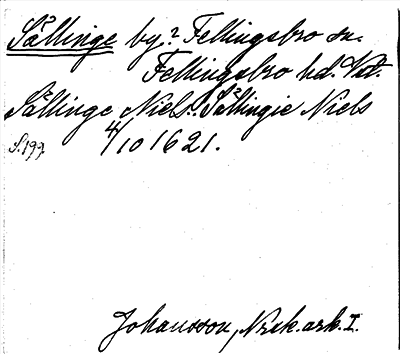 Sållinge by? Fellingsbro sn.
Fellingsbro hd. Vstl.
Sållinge Niels: Sållingie Niels
S. 199. 4/10 1621.
Johansson, Nrk. ark. I.